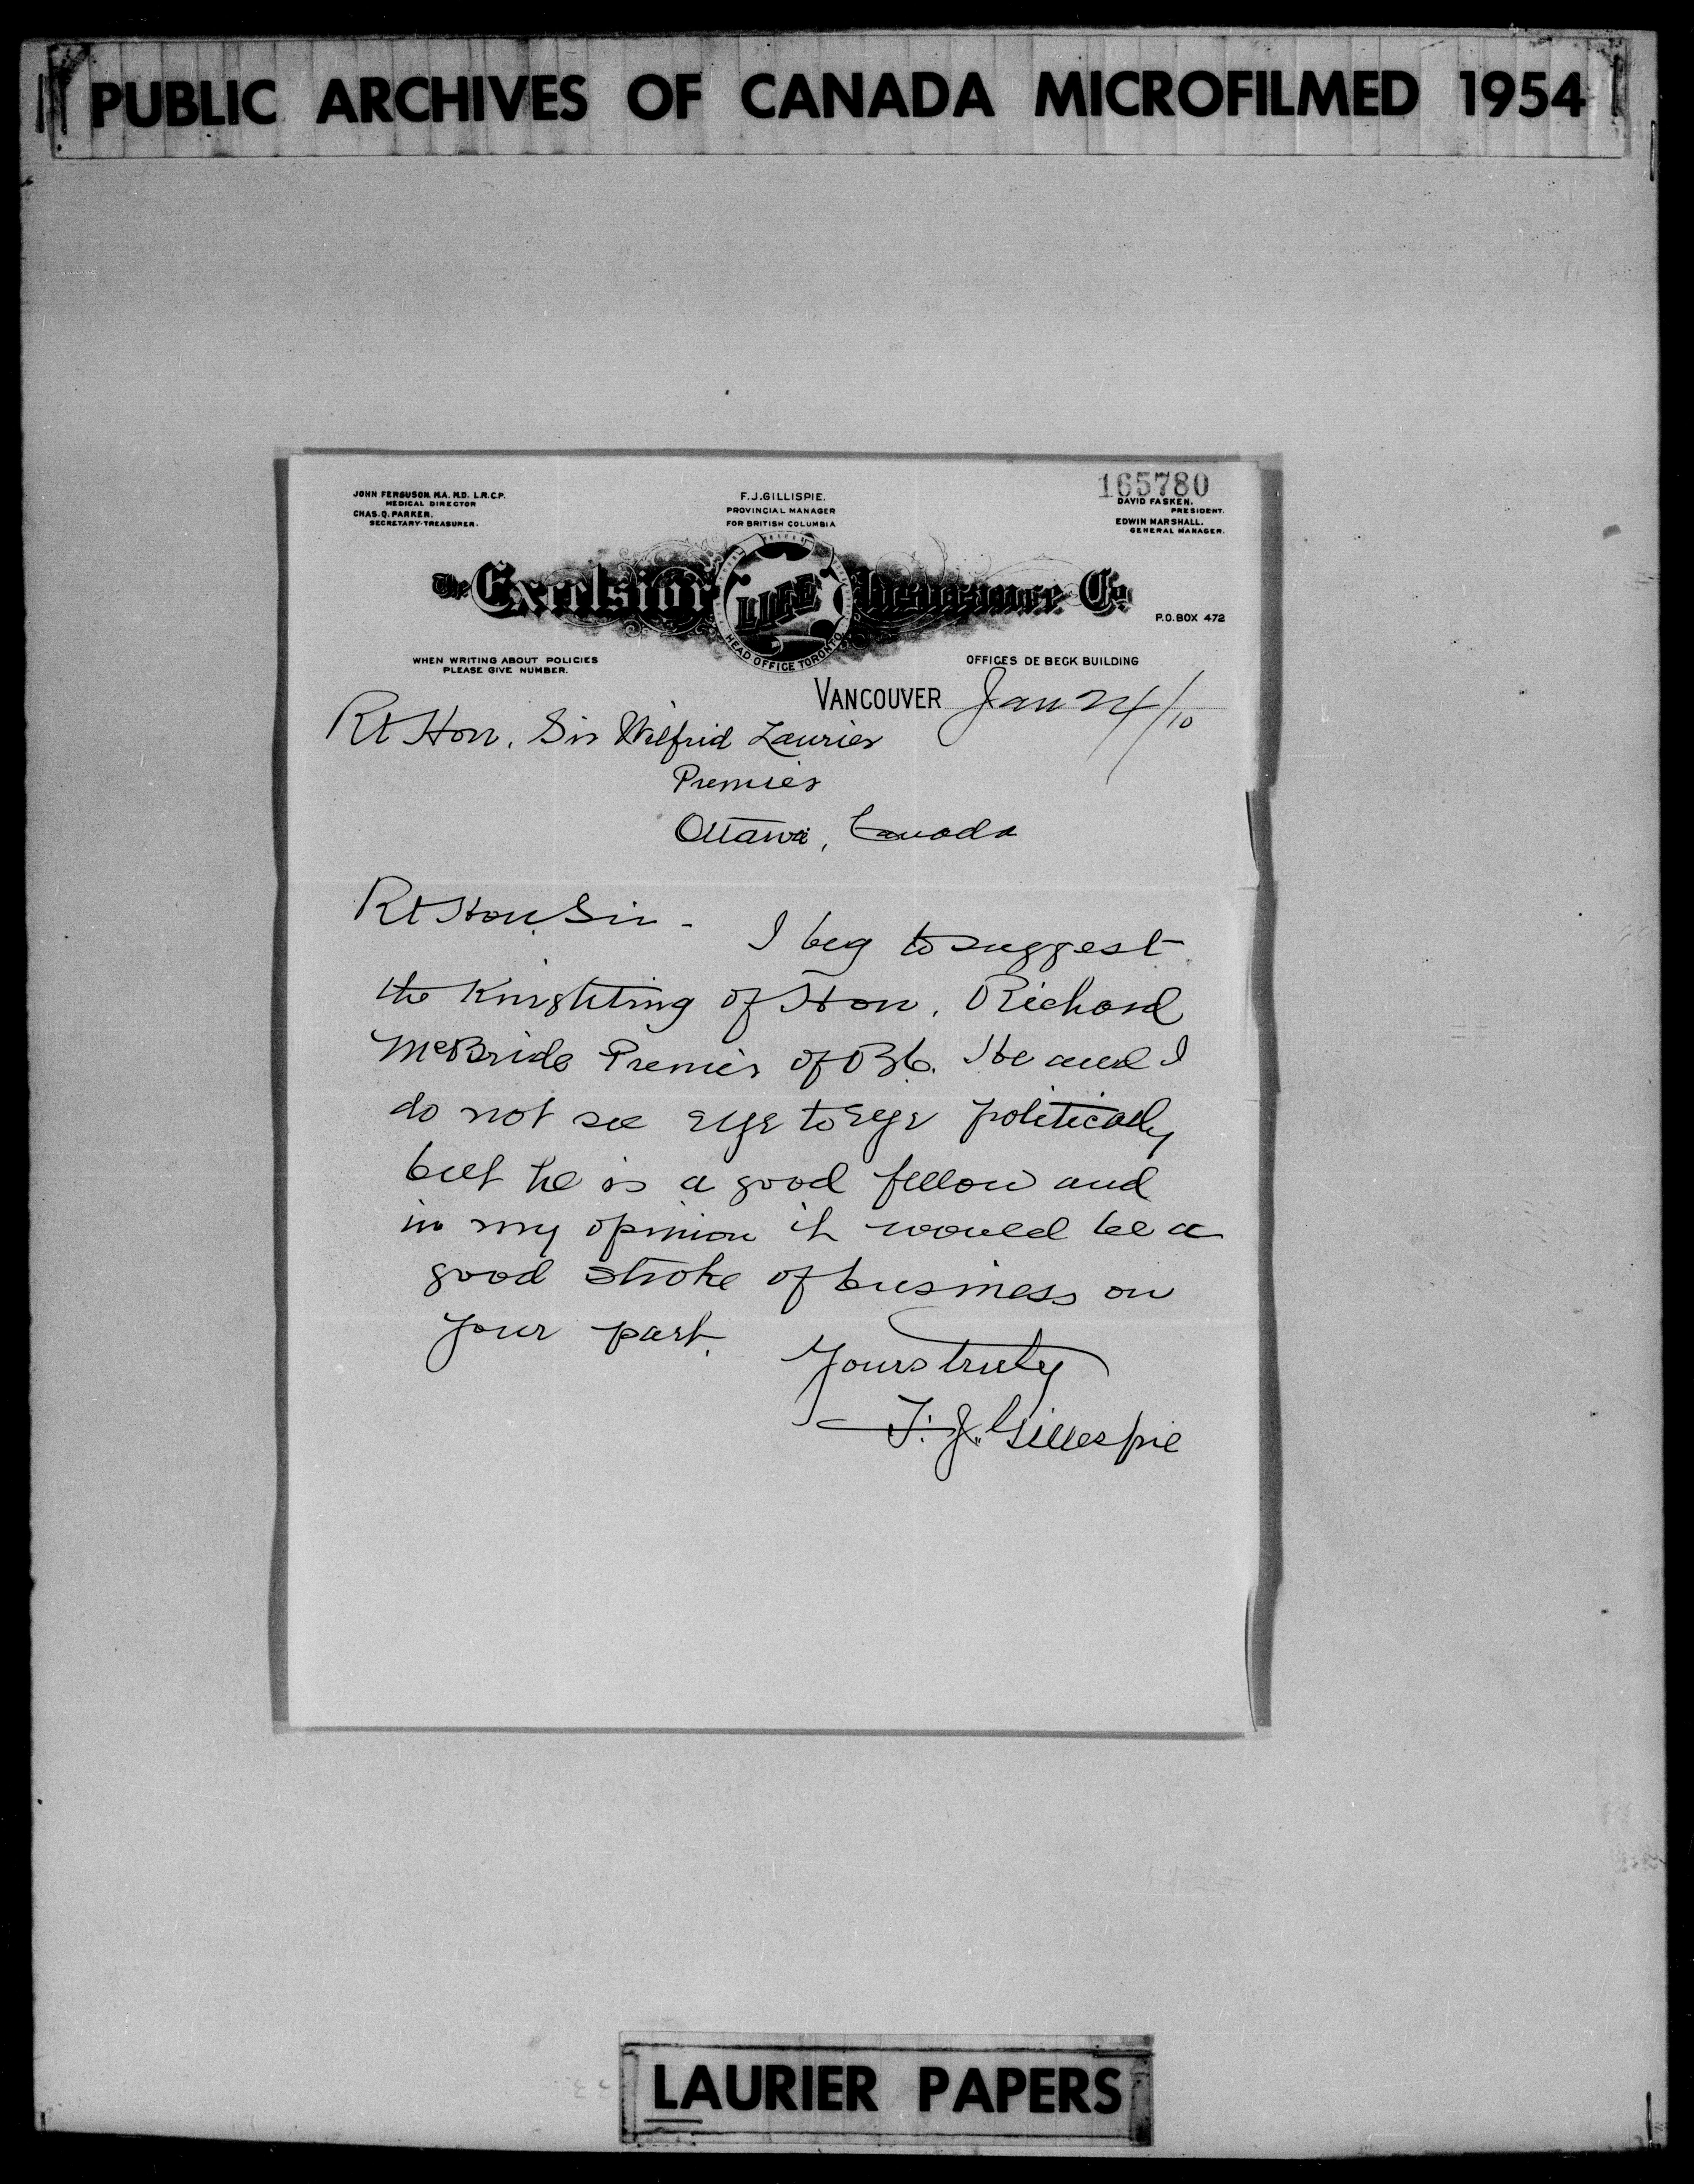 PUBLIC ARCHIVES OF CANADA MICROFILMED 1954
165780
JOHN FERGUSON, M.A. M.D. L.R.C.P.
MEDICAL DIRECTOR
CHAS. Q. PARKER.
SECRETARY-TREASURER.
F.J. GILLISPIE.
PROVINCIAL MANAGER
FOR BRITISH COLUMBIA
DAVID FASKEN.
PRESIDENT.
EDWIN MARSHALL.
GENERAL MANAGER.
The Excelsior LIFE Insurance Co.
HEAD OFFICE TORONTO
P.O. BOX 472
WHEN WRITING ABOUT POLICIES
PLEASE GIVE NUMBER.
OFFICES DE BECK BUILDING
VANCOUVER Jan 24/10
Rt Hon. Sir Wilfrid Laurier
Premier
Ottawa, Canada
Rt Hon. Sir -
I beg to suggest
the Knighting of Hon. Richard
McBride Premier of B.C. He and I
do not see eye to eye politically
but he is a good fellow and
in my opinion it would be a
good stroke of business on
your part.
Yours truly
F. J. Gillespie
LAURIER PAPERS